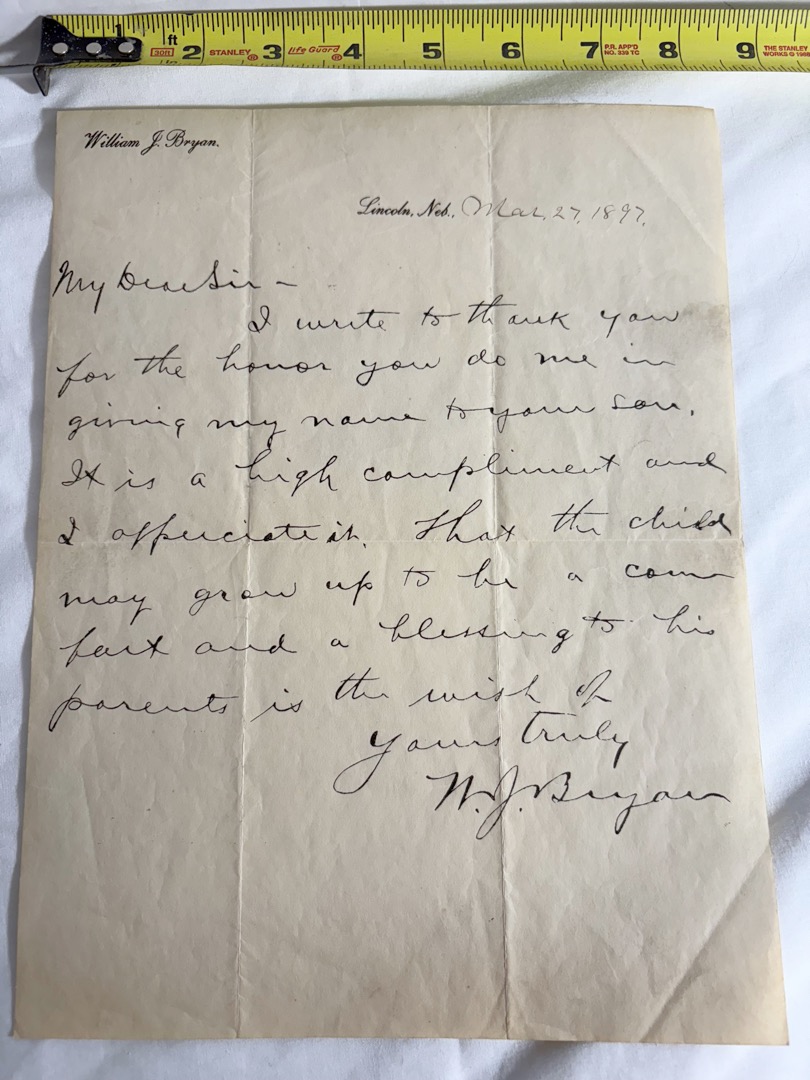 1 ft 2 3 4 5 6 7 8 9
30ft STANLEY® Life Guard® P.R. APP'D THE STANLEY
in NO. 339 TC WORKS © 1988
William J. Bryan.
Lincoln, Neb., Mar. 27, 1897.
My Dear Sir -
I write to thank you
for the honor you do me in
giving my name to your son.
It is a high compliment and
I appreciate it. That the child
may grow up to be a com
fort and a blessing to his
parents is the wish of
Yours truly
W. J. Bryan